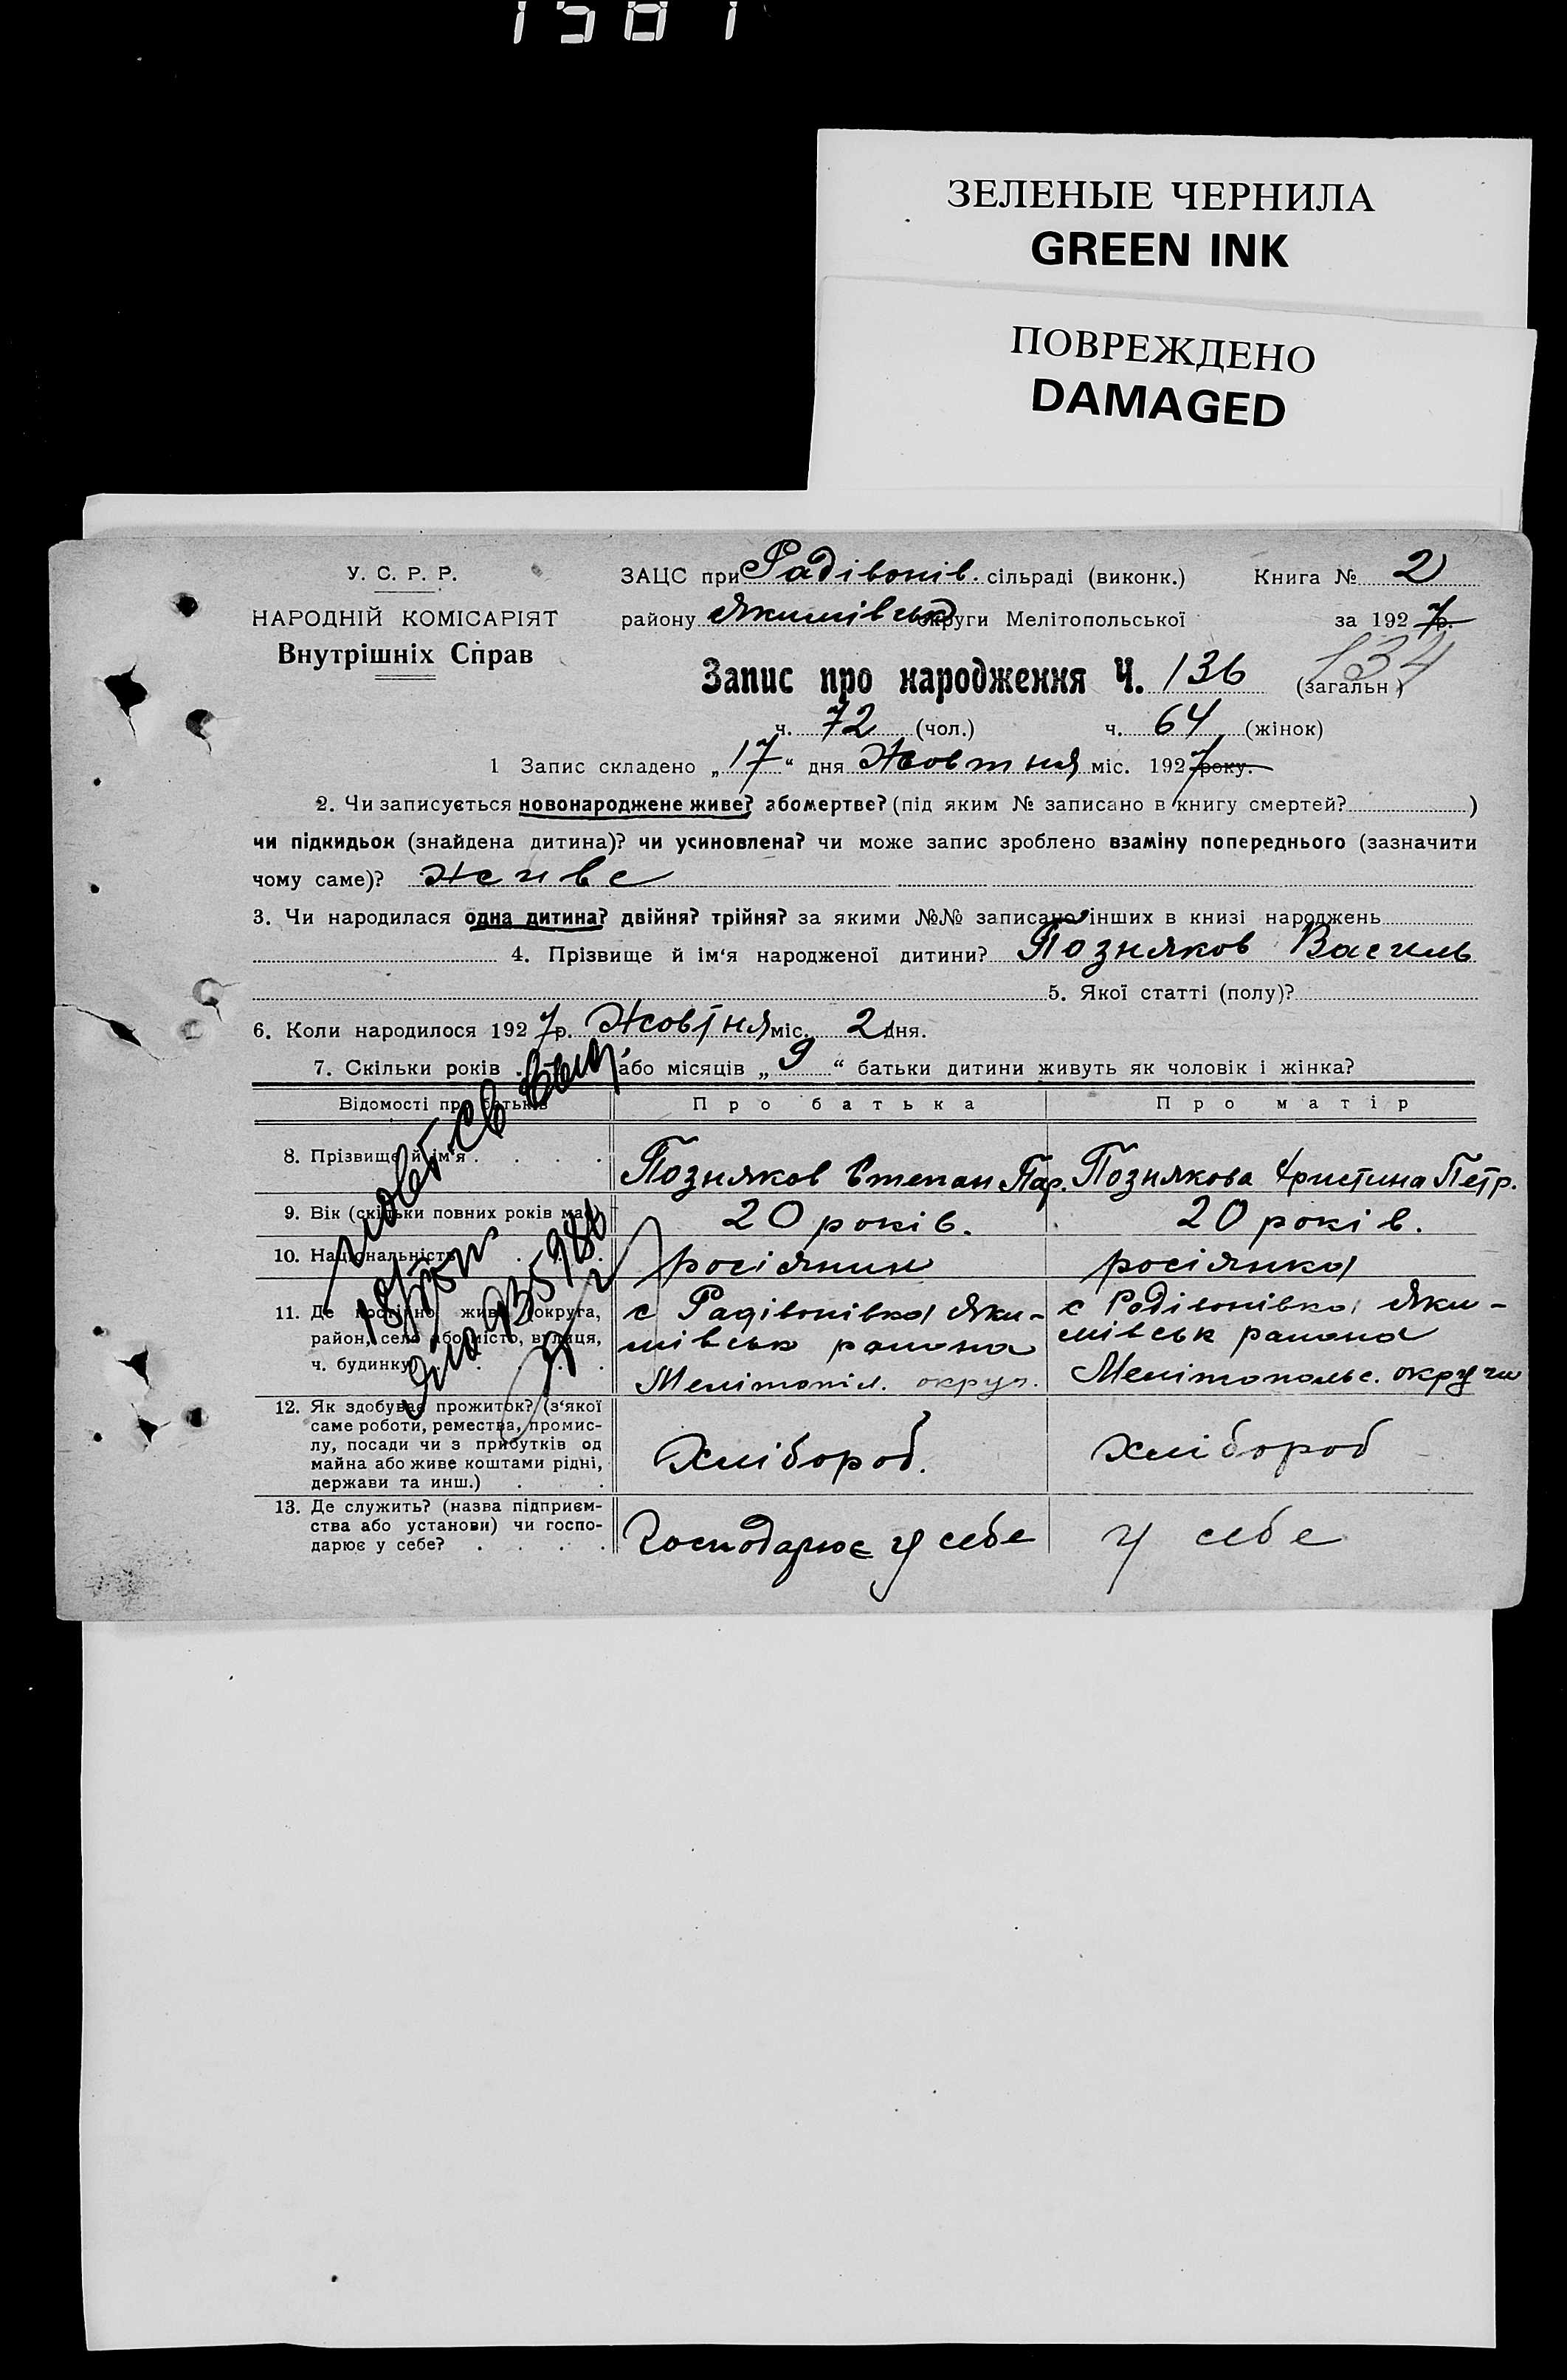 1581
ЗЕЛЕНЫЕ ЧЕРНИЛА
GREEN INK
ПОВРЕЖДЕНО
DAMAGED
У. С. Р. Р.
НАРОДНІЙ КОМІСАРІЯТ
Внутрішніх Справ
ЗАЦС при Радівонів. сільраді (виконк.) Книга № 2
району Якимівськ округи Мелітопольської за 1927 р.
134
Запис про народження Ч. 136 (загальн)
ч. 72 (чол.) ч. 64 (жінок)
1 Запис складено „17“ дня Жовтня міс. 1927 року.
2. Чи записується новонароджене живе? або мертве? (під яким № записано в книгу смертей? )
чи підкидьок (знайдена дитина)? чи усиновлена? чи може запис зроблено взаміну попереднього (зазначити
чому саме)? живе
3. Чи народилася одна дитина? двійня? трійня? за якими №№ записано інших в книзі народжень
4. Прізвище й ім‘я народженої дитини? Позняков Василь
5. Якої статті (полу)?
6. Коли народилося 1927 р. Жовтня міс. 2 дня.
7. Скільки років або місяців „9“ батьки дитини живуть як чоловік і жінка?
Відомості про батьків Про батька Про матір
8. Прізвище й ім‘я Позняков Степан Пар. Познякова Христина Петр.
9. Вік (скільки повних років має) 20 років. 20 років.
10. Національність росіянин росіянка
11. Де постійно живе (округа, с Радівонівка Яки- с Родівонівка Яки-
район, село або місто, вулиця, мівськ района мівськ района
ч. будинку) Мелітопіл. округ. Мелітопольс. округи
12. Як здобуває прожиток? (з‘якої
саме роботи, ремества, промис-
лу, посади чи з прибутків од Хлібороб. хлібороб
майна або живе коштами рідні,
держави та инш.)
13. Де служить? (назва підприєм-
ства або установи) чи госпо- Господарює у себе у себе
дарює у себе?